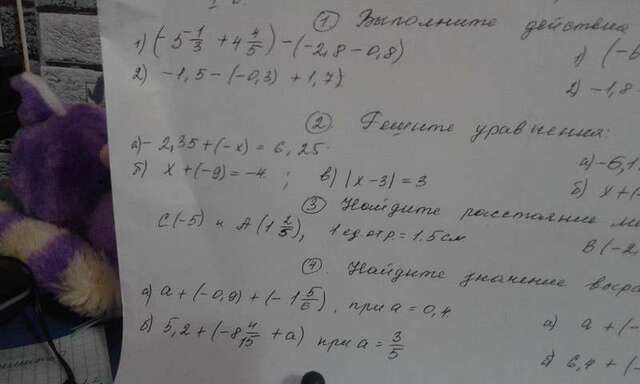 ① Выполните действия
1) (-5 1/3 + 4 4/5) - (-2,8 - 0,8)
1) (-6
2) -1,5 - (-0,3) + 1,7)
2) -1,8 -
② Решите уравнения:
а) - 2,35 + (-x) = 6,25.
а) -6,1
б) x + (-9) = -4 ; в) |x - 3| = 3
б) x + (-
③ Найдите расстояние
C(-5) и A(1 2/5), 1 ед. отр. = 1,5 см
B(-2,
④. Найдите значение выра
а) a + (-0,9) + (-1 5/6), при a = 0,4
а) a + (-
б) 5,2 + (-8 4/15 + a) при a = 3/5
б) 6,4 + (-